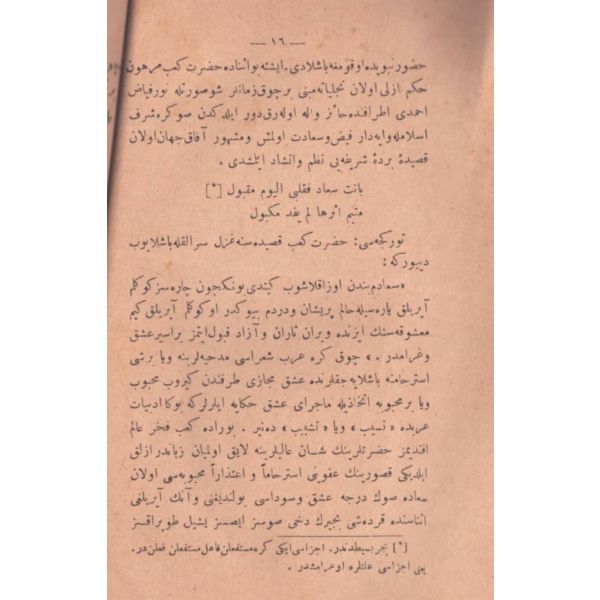 — ١٦ —
حضور نبويده اوقومغه باشلادى. ايشته بو اثناده حضرت كعب مرهون
حكم ازلى اولان تجلياته مبنى برچوق زمانلر شو صورتله نور فياض
احمدى اطرافنده حائر و واله اوله رق دور ايلدكدن صوكره شرف
اسلامله وايه دار فيض و سعادت اولمش و مشهور آفاق جهان اولان
قصيدهٔ بردهٔ شريفه يى نظم و انشاد ايتمشدى .
بانت سعاد فقلبى اليوم مقبول [*]
متيم اثرها لم يفد مكبول
توركجه سى: حضرت كعب قصيده سنه غزل سرالقله باشلايوب
دييوركه :
« سعادم بندن اوزاقلاشوب كيتدى بونكچون چاره سز كوكلم
آيريلق ياره سيله حالم پريشان و دردم بيوكدر او كوكلم آيريلق كيم
معشوقه سنك ايزنده ويران تاران و آزاد قبول ايتمز بر اسير عشق
و غرامدر . » چوق كره عرب شعراسى مدحيه لرينه ويا برشى
استرحامنه باشلايه جقلرنده عشق مجازى طرفندن كيروب محبوب
ويا بر محبوبه اتخاذيله ماجراى عشق حكايه ايلرلركه بوكا ادبيات
عربده « نسيب » ويا « تشبيب » ده نير . بوراده كعب فخر عالم
افنديمز حضرتلرينك شان عاليلرينه لايق اولميان زياندر ازلق
ايلديكى قصورينك عفونى استرحاماً و اعتذاراً محبوبه سى اولان
سعاده صوك درجه عشق و سوداسى بولنديغنى و آنك آيريلغى
اثناسنده قرده شى بجيرك دخى صوسز ايصسز يشيل طوپراقسز
[*] بحر بسيطدندر . اجزاسى ايكى كره مستفعلن فاعل مستفعلن فعلن در .
يعنى اجزاسى علتلره اوغرامشدر .